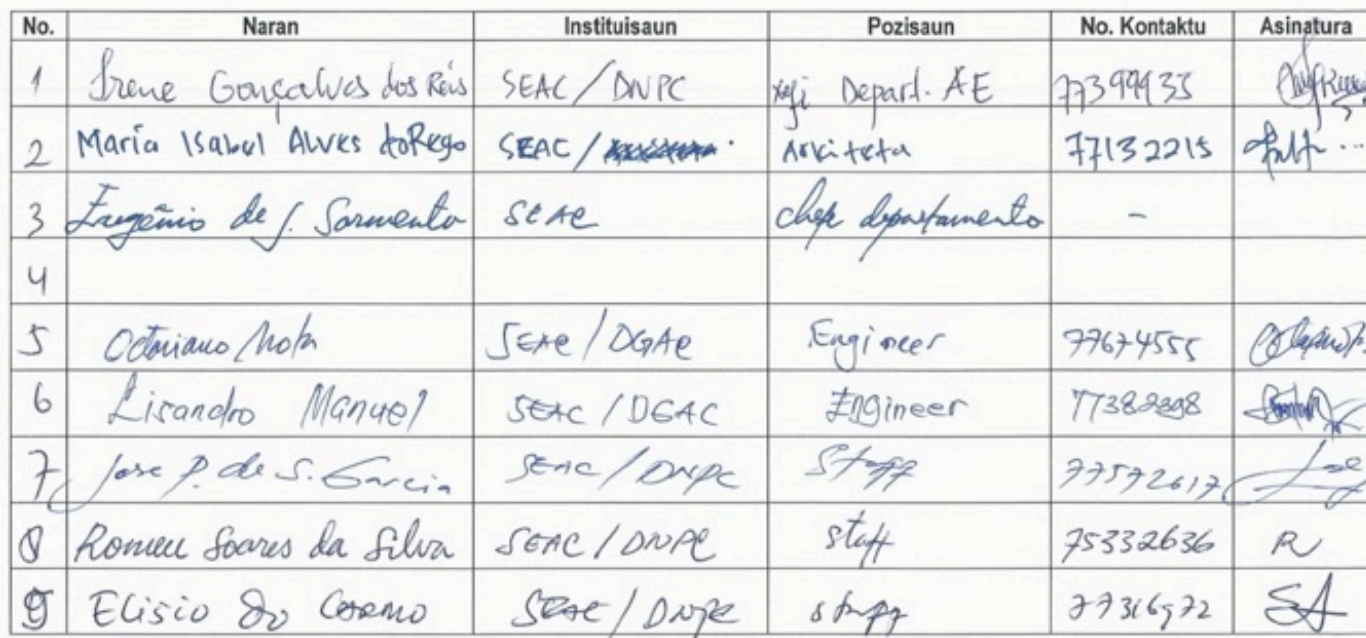 No. Naran Instituisaun Pozisaun No. Kontaktu Asinatura
1 Irene Gonçalves dos Reis SEAC/DNPC xefi Depart. AE 77399935
2 Maria Isabel Alves do Rego SEAC/ Arkiteta 77132215
3 Eugênio de J. Sarmento SEAC chefe departamento -
4
5 Octaviano Mota SEAC/DGAC Engineer 77674555
6 Lisandro Manuel SEAC/DGAC Engineer
7 Jose P. de S. Garcia SEAC/DNPC Staff 77572617
8 Romeu Soares da Silva SEAC/DNPC staff 75332636 R
9 Elisio do Carmo SEAC/DNPC staff 77316972 SA